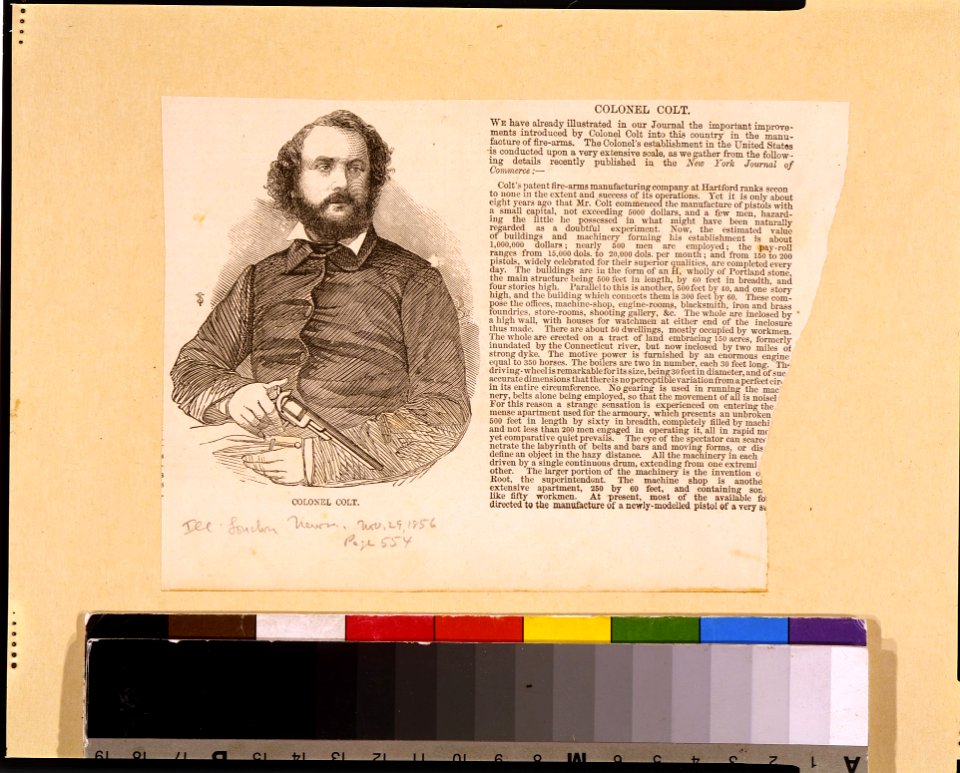 COLONEL COLT.
WE have already illustrated in our Journal the important improve-
ments introduced by Colonel Colt into this country in the manu-
facture of fire-arms. The Colonel's establishment in the United States
is conducted upon a very extensive scale, as we gather from the follow-
ing details recently published in the New York Journal of
Commerce:—
Colt's patent fire-arms manufacturing company at Hartford ranks secon
to none in the extent and success of its operations. Yet it is only about
eight years ago that Mr. Colt commenced the manufacture of pistols with
a small capital, not exceeding 5000 dollars, and a few men, hazard-
ing the little he possessed in what might have been naturally
regarded as a doubtful experiment. Now, the estimated value
of buildings and machinery forming his establishment is about
1,000,000 dollars; nearly 500 men are employed; the pay-roll
ranges from 15,000 dols. to 20,000 dols. per month; and from 150 to 200
pistols, widely celebrated for their superior qualities, are completed every
day. The buildings are in the form of an H, wholly of Portland stone,
the main structure being 500 feet in length, by 60 feet in breadth, and
four stories high. Parallel to this is another, 500 feet by 40, and one story
high, and the building which connects them is 300 feet by 60. These com-
pose the offices, machine-shop, engine-rooms, blacksmith, iron and brass
foundries, store-rooms, shooting gallery, &c. The whole are inclosed by
a high wall, with houses for watchmen at either end of the inclosure
thus made. There are about 50 dwellings, mostly occupied by workmen.
The whole are erected on a tract of land embracing 150 acres, formerly
inundated by the Connecticut river, but now inclosed by two miles of
strong dyke. The motive power is furnished by an enormous engine
equal to 350 horses. The boilers are two in number, each 30 feet long. Th
driving-wheel is remarkable for its size, being 30 feet in diameter, and of suc
accurate dimensions that there is no perceptible variation from a perfect cir
in its entire circumference. No gearing is used in running the mac
nery, belts alone being employed, so that the movement of all is noisel
For this reason a strange sensation is experienced on entering the
mense apartment used for the armoury, which presents an unbroken
500 feet in length by sixty in breadth, completely filled by machi
and not less than 200 men engaged in operating it, all in rapid mo
yet comparative quiet prevails. The eye of the spectator can scarce
netrate the labyrinth of belts and bars and moving forms, or dis
define an object in the hazy distance. All the machinery in each
driven by a single continuous drum, extending from one extremi
other. The larger portion of the machinery is the invention o
Root, the superintendent. The machine shop is anothe
extensive apartment, 250 by 60 feet, and containing som
like fifty workmen. At present, most of the available fo
directed to the manufacture of a newly-modelled pistol of a very s
COLONEL COLT.
Ill. London News, Nov. 29, 1856
Page 554
19 18 17 B 15 14 13 12 11 10 9 8 M 6 5 4 3 2 1 A